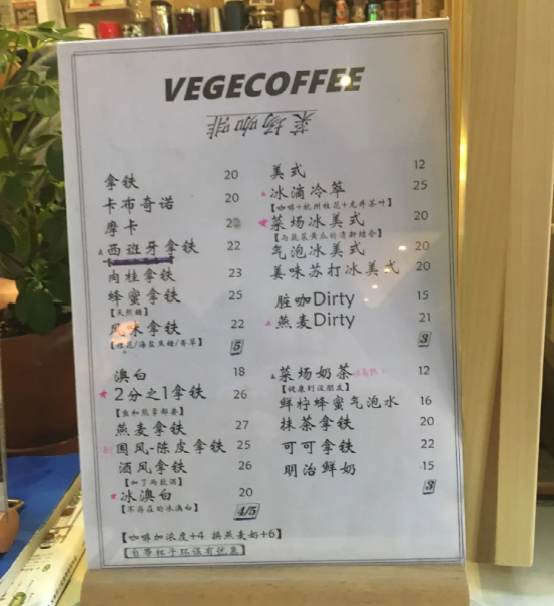 VEGECOFFEE
菜场咖啡
拿铁 20
卡布奇诺 20
摩卡
西班牙拿铁 22
肉桂拿铁 23
蜂蜜拿铁 25
【天然糖】
风味拿铁 22
【桂花/海盐焦糖/香草】
5
澳白 18
2分之1拿铁 26
【鱼和熊掌都要】
燕麦拿铁 27
国风-陈皮拿铁 25
酒风拿铁 26
【加了两款酒】
冰澳白 20
【不存在的冰澳白】
4/5
美式 12
冰滴冷萃 25
【咖啡+杭州桂花+龙井茶叶】
菜场冰美式 20
【与蔬菜黄瓜的清新结合】
气泡冰美式 20
姜味苏打冰美式 20
脏咖Dirty 15
燕麦Dirty 21
3
菜场奶茶 12
【健康到没朋友】
鲜柠蜂蜜气泡水 16
抹茶拿铁 20
可可拿铁 22
明治鲜奶 15
3
【咖啡加浓度+4 换燕麦奶+6】
【自带杯子环保有优惠】